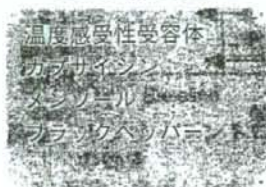 温度感受性受容体
カプサイシン
メンソール
ブラックペッパー